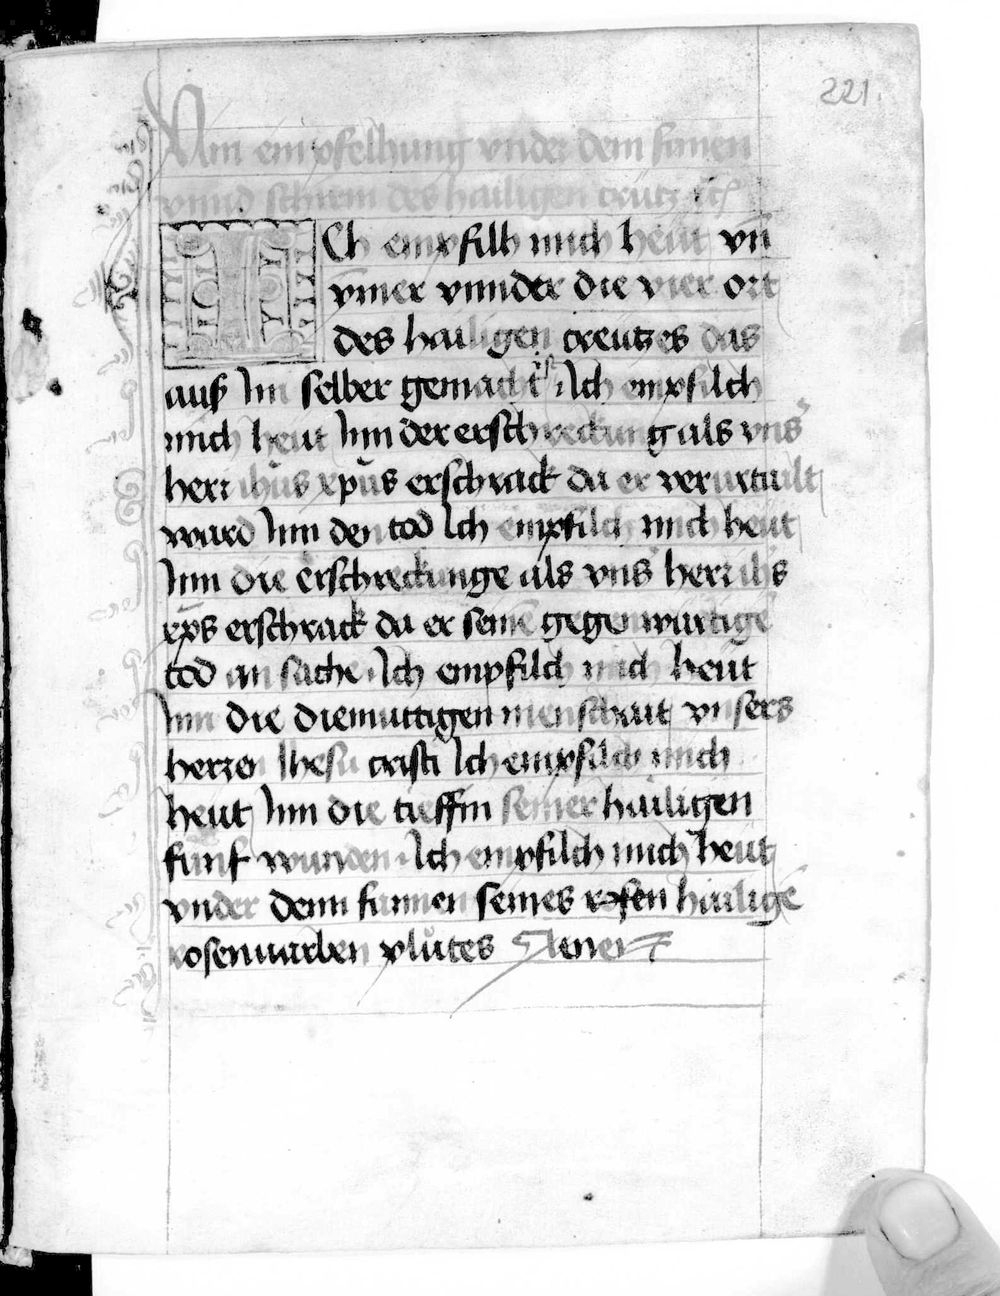 221.
Ain empfelhung vnder dem fanen
vnnd schirm des hailigen creütz
ICh empfilh mich heut vn̄
ymer vnnder die vier ort
des hailigen creutzes das
auß Im selber gemacht ist Ich empfilch
mich heut Inn der erschreckung als vns
herr ihūs xp̄us erschrack da er verurtailt
ward Inn den tod Ich empfilch mich heut
Inn die erschreckunge als vns herr ih̄s
xp̄s erschrack da er seine gegenwürtige
tod an sache Ich empfilch mich heüt
Inn die diemuttigen menschait vnsers
herren Ihesu cristi Ich empfilch mich
heut Inn die tieffin seiner hailigen
fünf wunden Ich empfilch mich heut
vnder denn fannen seines hailige
rosenuarben plůtes Amen